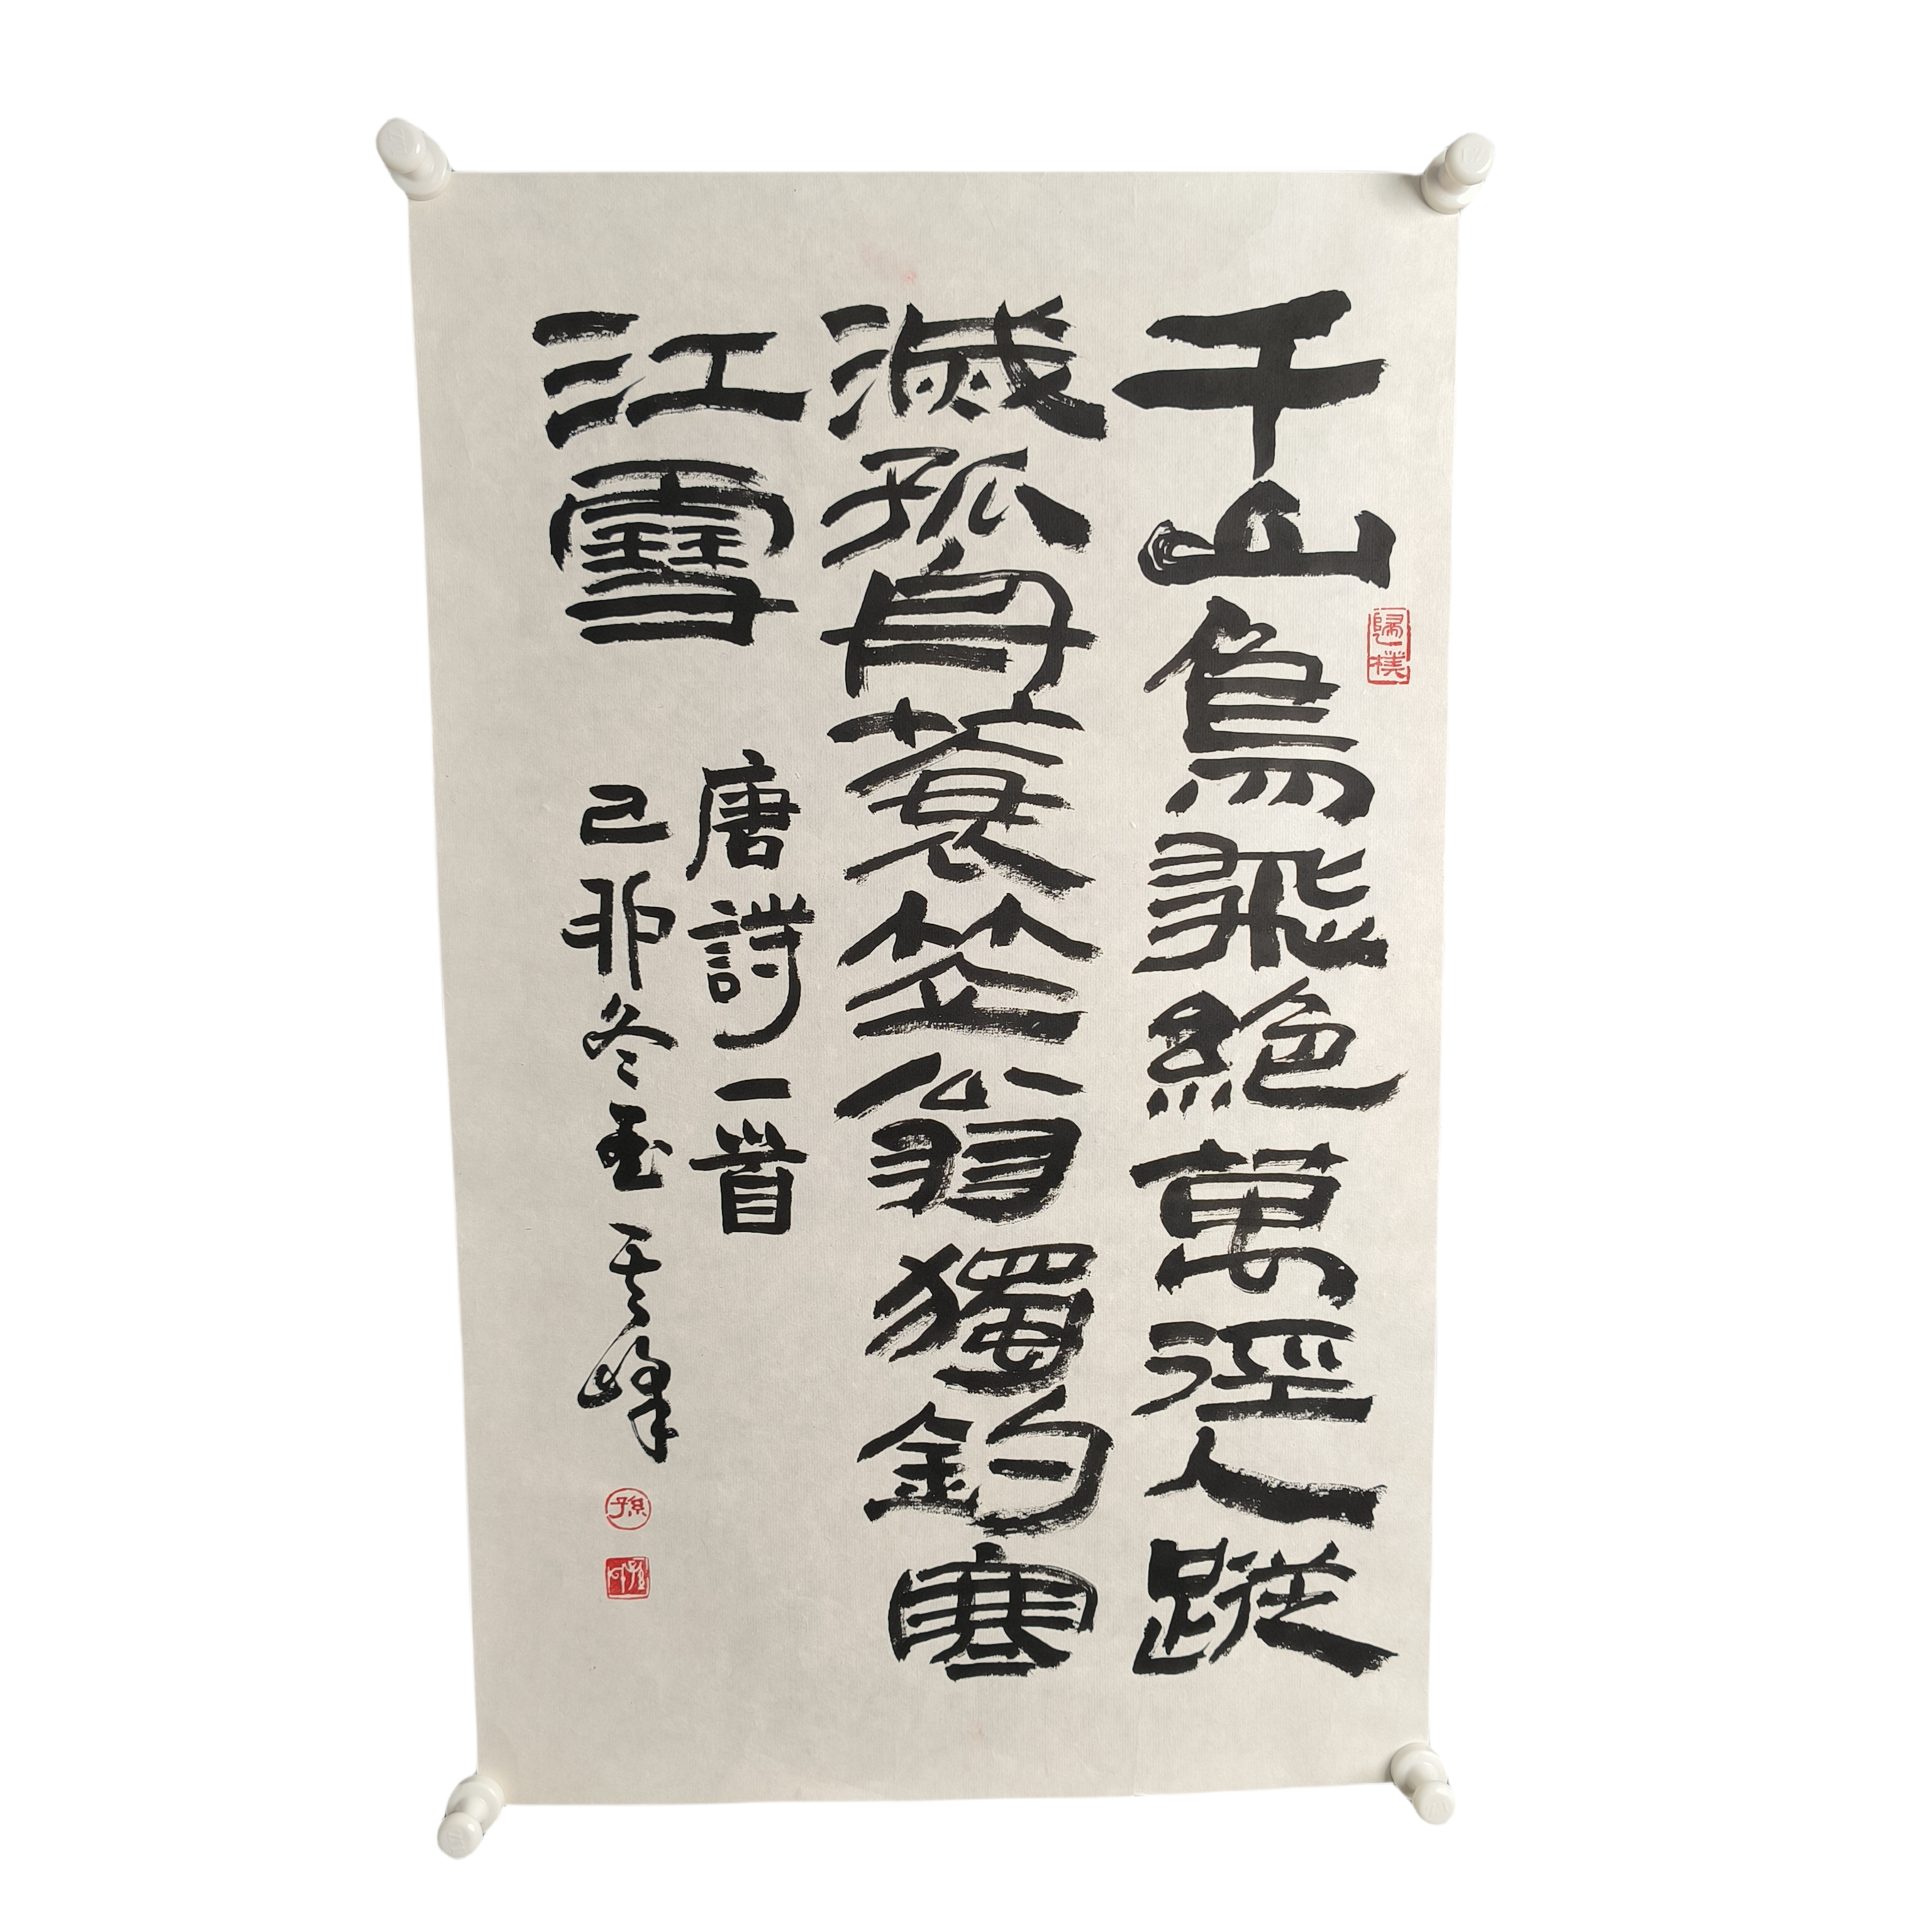 千山鳥飛絶萬逕人蹤
滅孤舟蓑笠翁獨釣寒
江雪
唐詩一首
己卯冬至 云峰
歸樸
孫